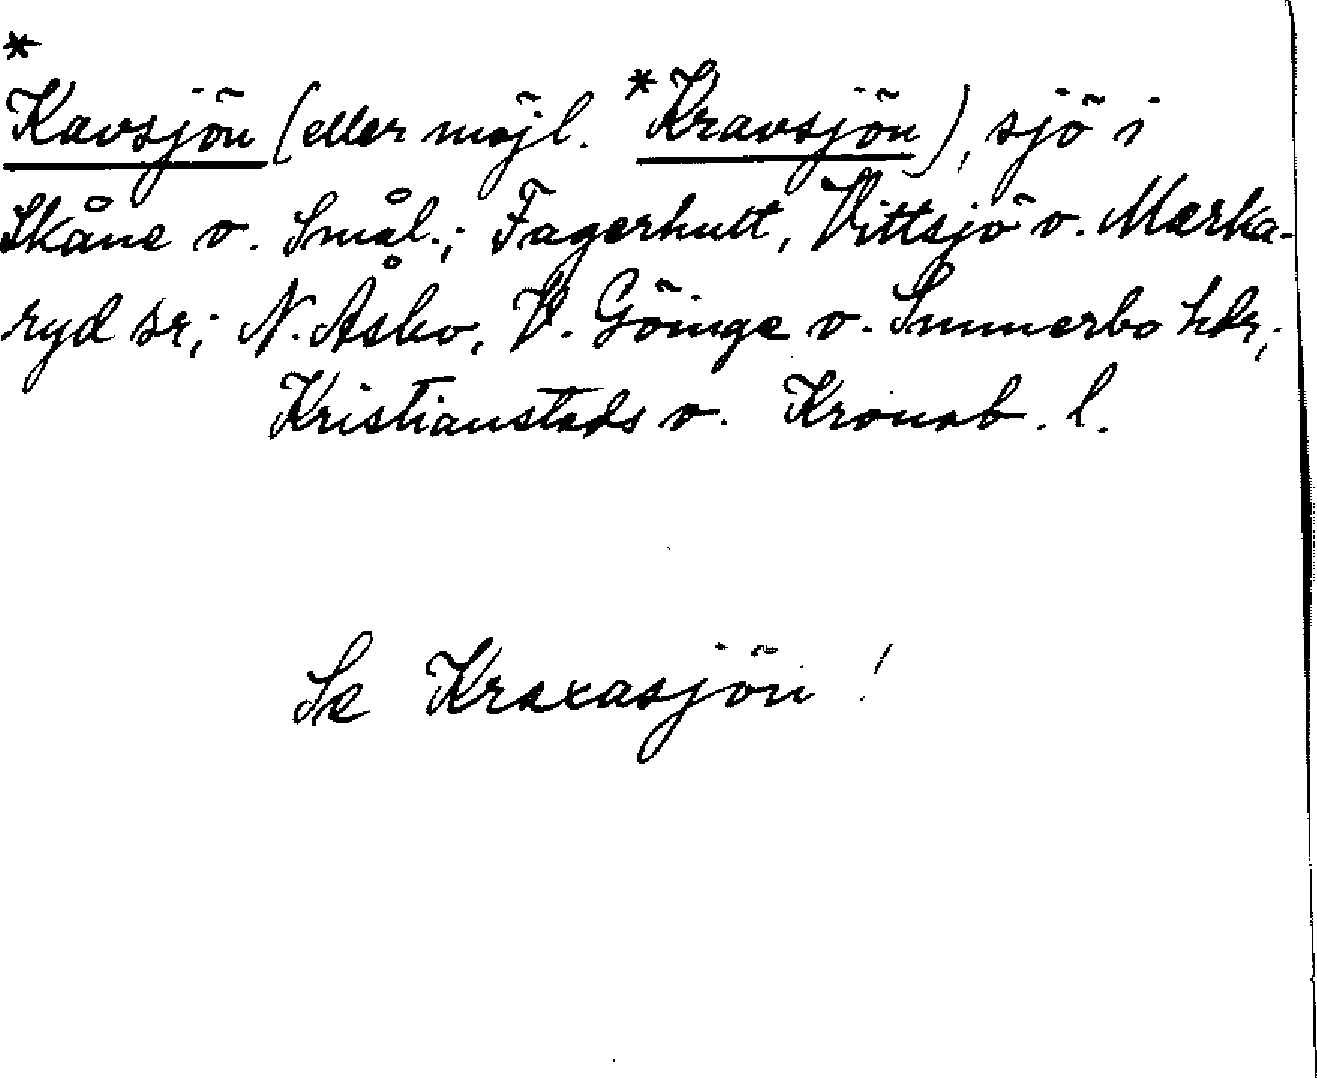 *
Kavsjön (eller möjl. *Kravsjön), sjö i
Skåne o. Smål.; Fagerhult, Vittsjö o. Marka-
ryd sr; N. Åsbo, V. Göinge o. Sunnerbo hdr;
Kristianstads o. Kronob. l.
Se Kraxasjön!